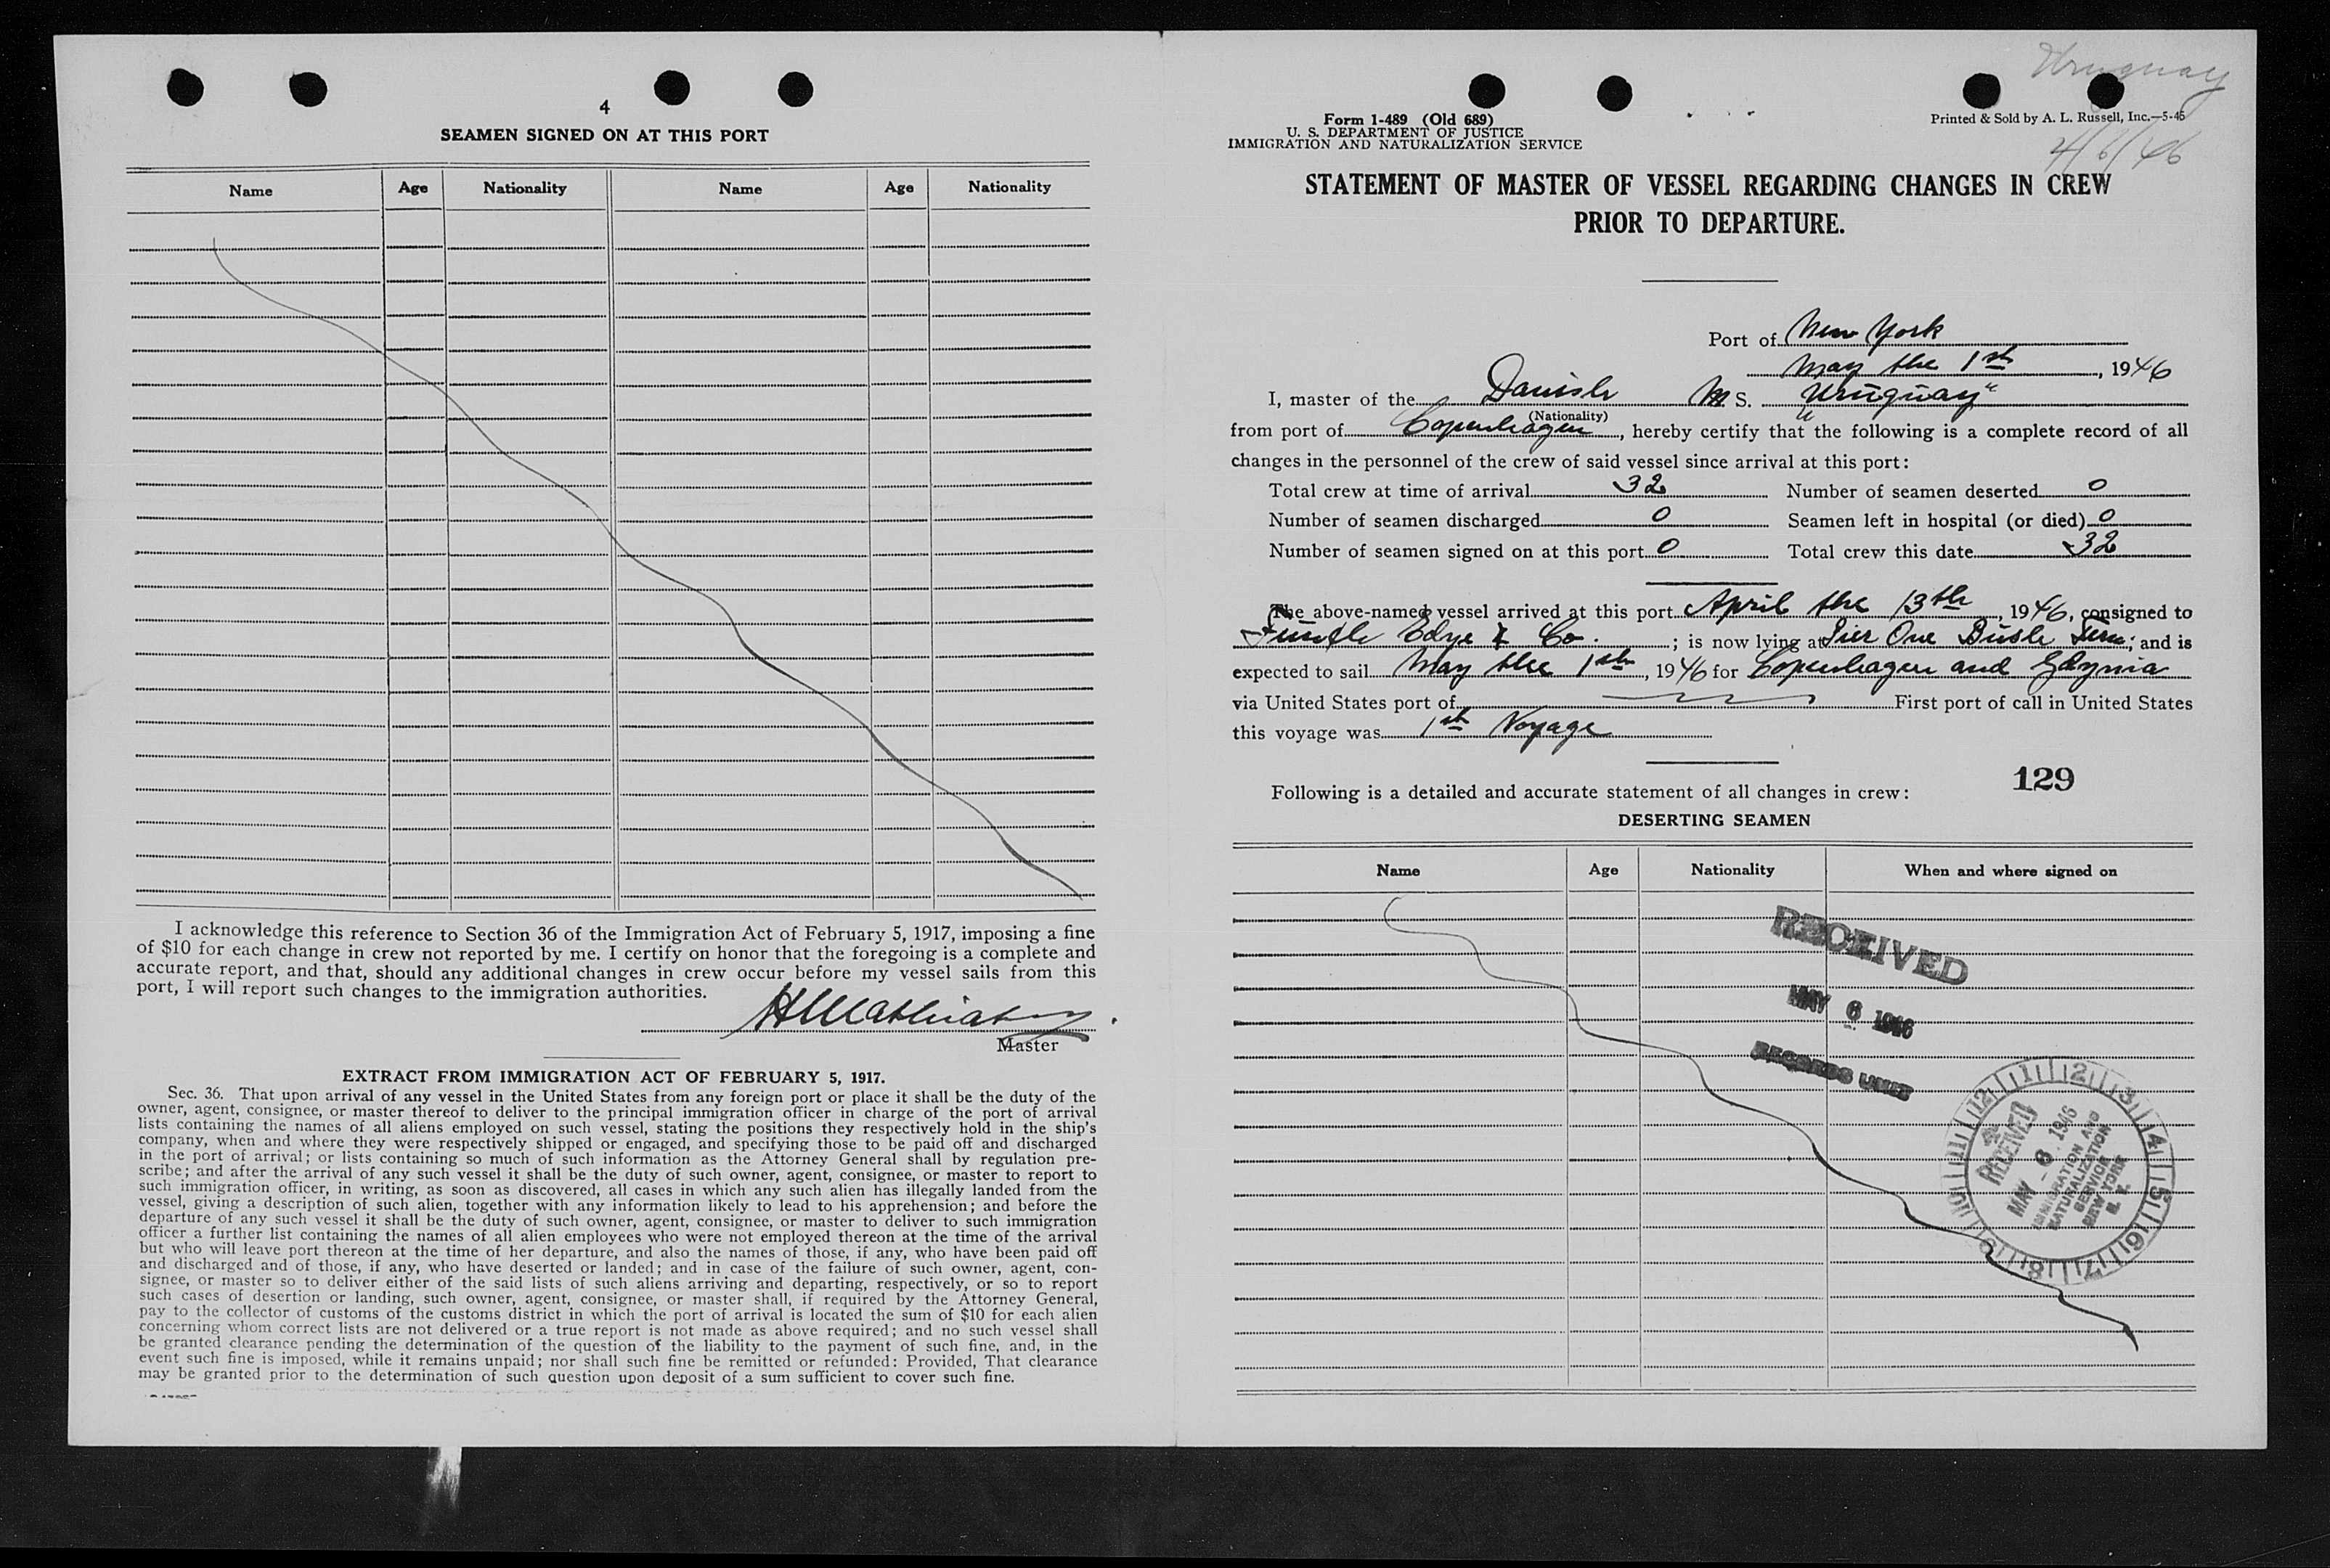 4
SEAMEN SIGNED ON AT THIS PORT
Name Age Nationality Name Age Nationality
I acknowledge this reference to Section 36 of the Immigration Act of February 5, 1917, imposing a fine
of $10 for each change in crew not reported by me. I certify on honor that the foregoing is a complete and
accurate report, and that, should any additional changes in crew occur before my vessel sails from this
port, I will report such changes to the immigration authorities.
Master
EXTRACT FROM IMMIGRATION ACT OF FEBRUARY 5, 1917.
Sec. 36. That upon arrival of any vessel in the United States from any foreign port or place it shall be the duty of the
owner, agent, consignee, or master thereof to deliver to the principal immigration officer in charge of the port of arrival
lists containing the names of all aliens employed on such vessel, stating the positions they respectively hold in the ship's
company, when and where they were respectively shipped or engaged, and specifying those to be paid off and discharged
in the port of arrival; or lists containing so much of such information as the Attorney General shall by regulation pre-
scribe; and after the arrival of any such vessel it shall be the duty of such owner, agent, consignee, or master to report to
such immigration officer, in writing, as soon as discovered, all cases in which any such alien has illegally landed from the
vessel, giving a description of such alien, together with any information likely to lead to his apprehension; and before the
departure of any such vessel it shall be the duty of such owner, agent, consignee, or master to deliver to such immigration
officer a further list containing the names of all alien employees who were not employed thereon at the time of the arrival
but who will leave port thereon at the time of her departure, and also the names of those, if any, who have been paid off
and discharged and of those, if any, who have deserted or landed; and in case of the failure of such owner, agent, con-
signee, or master so to deliver either of the said lists of such aliens arriving and departing, respectively, or so to report
such cases of desertion or landing, such owner, agent, consignee, or master shall, if required by the Attorney General,
pay to the collector of customs of the customs district in which the port of arrival is located the sum of $10 for each alien
concerning whom correct lists are not delivered or a true report is not made as above required; and no such vessel shall
be granted clearance pending the determination of the question of the liability to the payment of such fine, and, in the
event such fine is imposed, while it remains unpaid; nor shall such fine be remitted or refunded: Provided, That clearance
may be granted prior to the determination of such question upon deposit of a sum sufficient to cover such fine.
Uruguay
Form 1-489 (Old 689)
U. S. DEPARTMENT OF JUSTICE
IMMIGRATION AND NATURALIZATION SERVICE
Printed & Sold by A. L. Russell, Inc.—5-45
STATEMENT OF MASTER OF VESSEL REGARDING CHANGES IN CREW
PRIOR TO DEPARTURE.
Port of New York
May the 1st, 1946
I, master of the Danish M S. "Uruguay"
(Nationality)
from port of Copenhagen, hereby certify that the following is a complete record of all
changes in the personnel of the crew of said vessel since arrival at this port:
Total crew at time of arrival 32 Number of seamen deserted 0
Number of seamen discharged 0 Seamen left in hospital (or died) 0
Number of seamen signed on at this port 0 Total crew this date 32
The above-named vessel arrived at this port April the 13th, 1946, consigned to
Edye & Co.; is now lying at Pier One Bush Term; and is
expected to sail May the 1st, 1946 for Copenhagen and Gdynia
via United States port of First port of call in United States
this voyage was 1st Voyage
129
Following is a detailed and accurate statement of all changes in crew:
DESERTING SEAMEN
Name Age Nationality When and where signed on
RECEIVED
MAY 6 1946
RECORDS UNIT
12 1 2 3 4 5 6 7 8 9 10 11
RECEIVED
MAY - 6 1946
IMMIGRATION AND
NATURALIZATION
SERVICE
NEW YORK
N. Y.